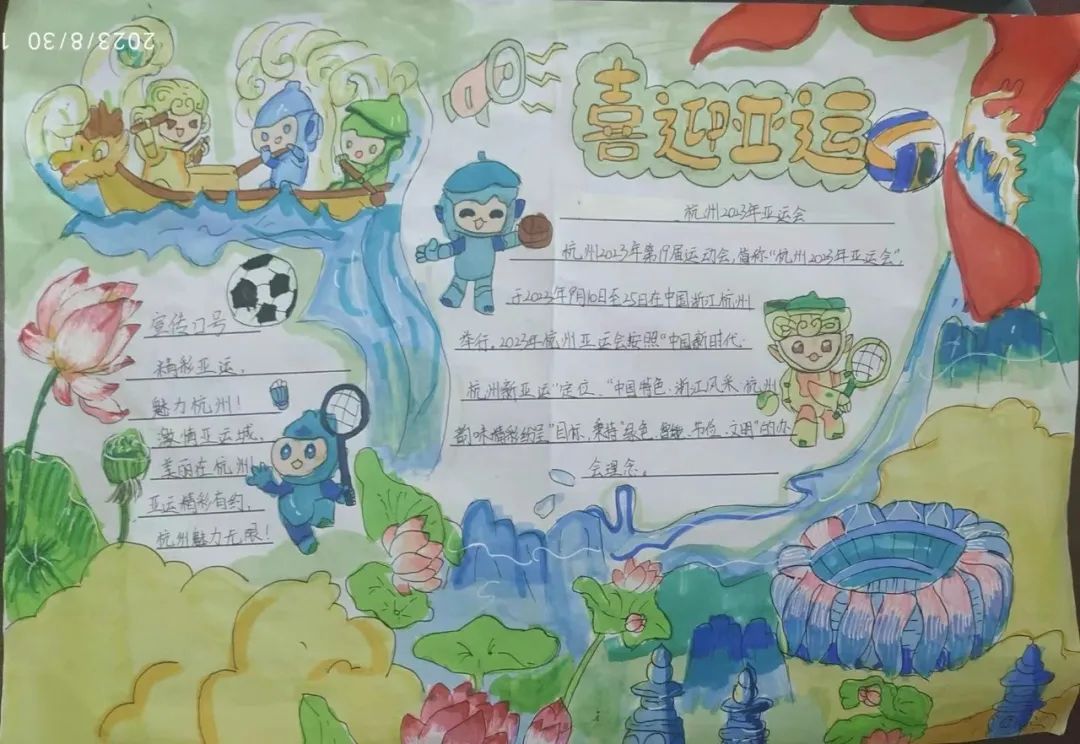 2023/8/30 1
喜迎亚运
杭州2023年亚运会
杭州2023年第19届运动会,简称“杭州2023年亚运会”,
于2023年9月10日至25日在中国浙江杭州
举行。2023年杭州亚运会按照“中国新时代·
杭州新亚运”定位、“中国特色·浙江风采·杭州
韵味精彩纷呈”目标,秉持“绿色、智能、节俭、文明”的办
会理念。
宣传口号
精彩亚运,
魅力杭州!
激情亚运城,
美丽在杭州
亚运精彩有约,
杭州魅力无限!